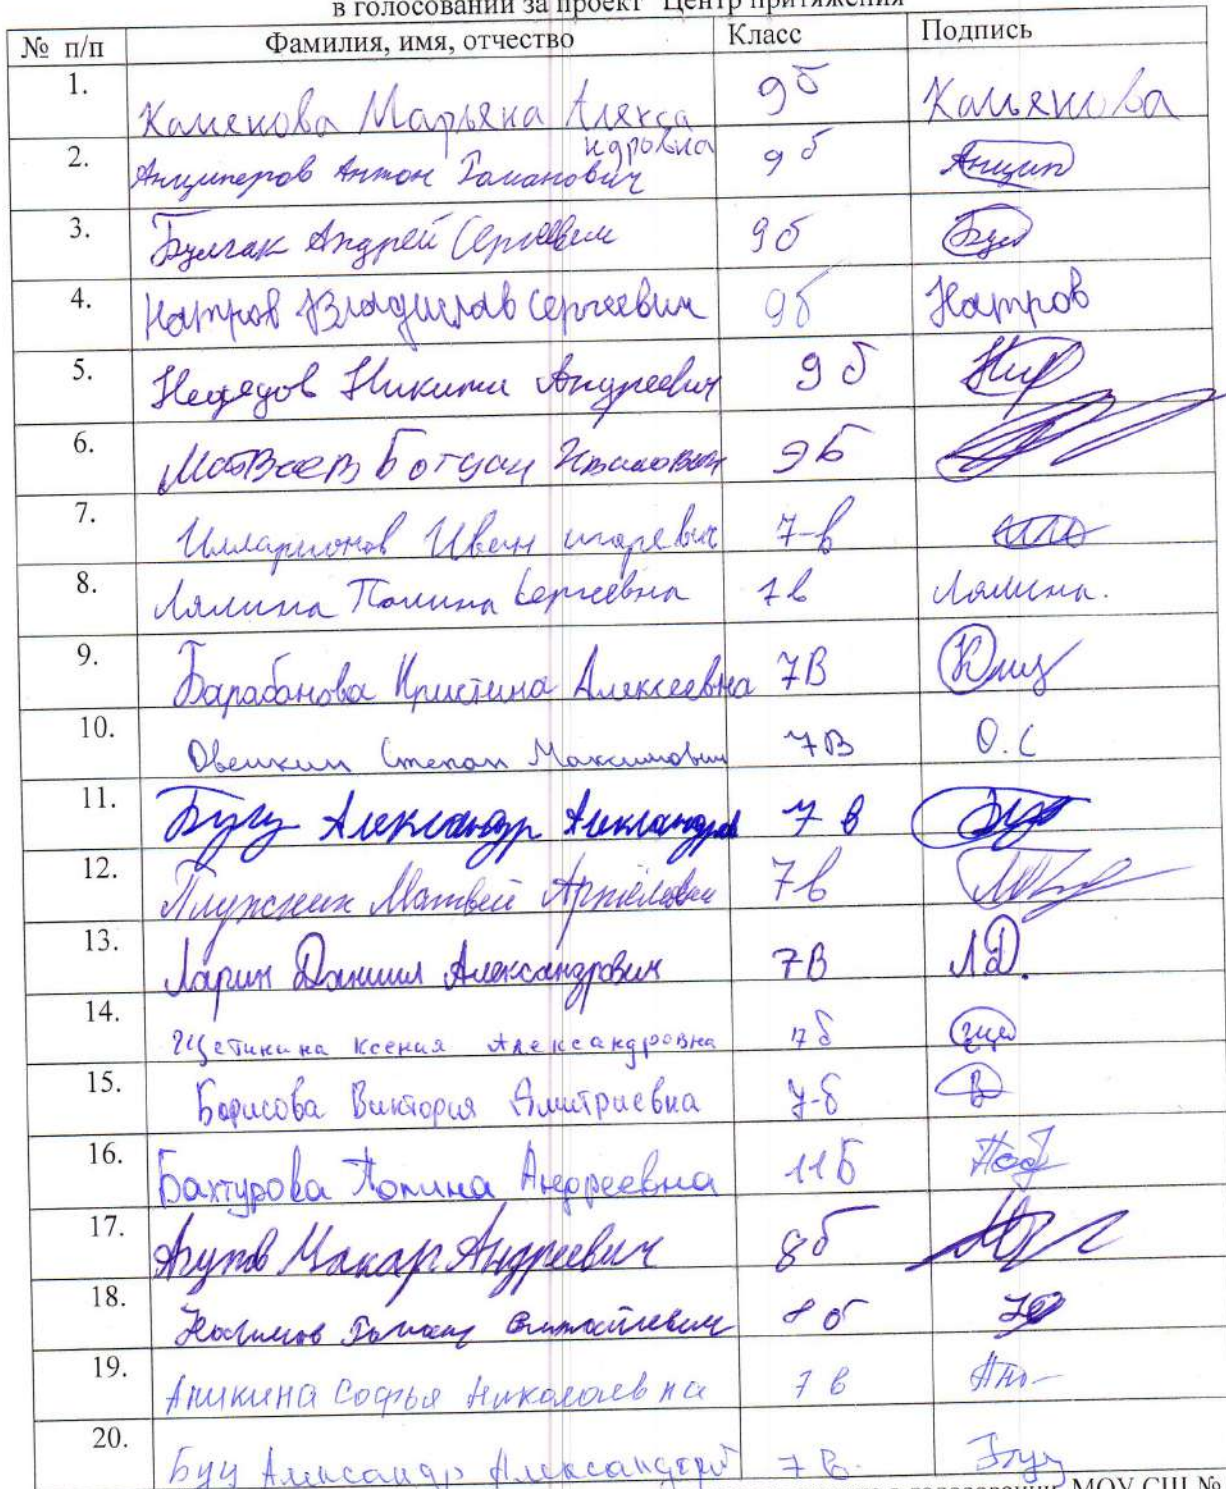 в голосовании за проект "Центр притяжения"
№ п/п Фамилия, имя, отчество Класс Подпись
1. Каменова Марьяна Алекса 9б
ндровна
2. Анциперов Антон Романович 9б Анцип
3. Булгак Андрей Сергеевич 9б Бул
4. Натров Владислав Сергеевич 9б Натров
5. Недядов Никита Андреевич 9б
6. Матвеев Богдан Иванович 9Б
7. Илларионов Иван игоревич 7-в
8. Лялина Полина Сергеевна 7в Лялина.
9. Барабанова Кристина Алексеевна 7В
10. Овечкин Степан Максимович 7В О.С
11. Буц Александр Александров 7в
12. Плужник Матвей Артёмович 7в
13. Ларин Даниил Александрович 7В Л.Д.
14. Щетинина Ксения Александровна 7б
15. Борисова Виктория Дмитриевна 7-б В
16. Бахтурова Полина Андреевна 11Б
17. Макар Андреевич 8б
18. 8б
19. Аникина Софья Николаевна 7в
20. Буц Александр 7В. Буц
в голосовании МОУ СШ №